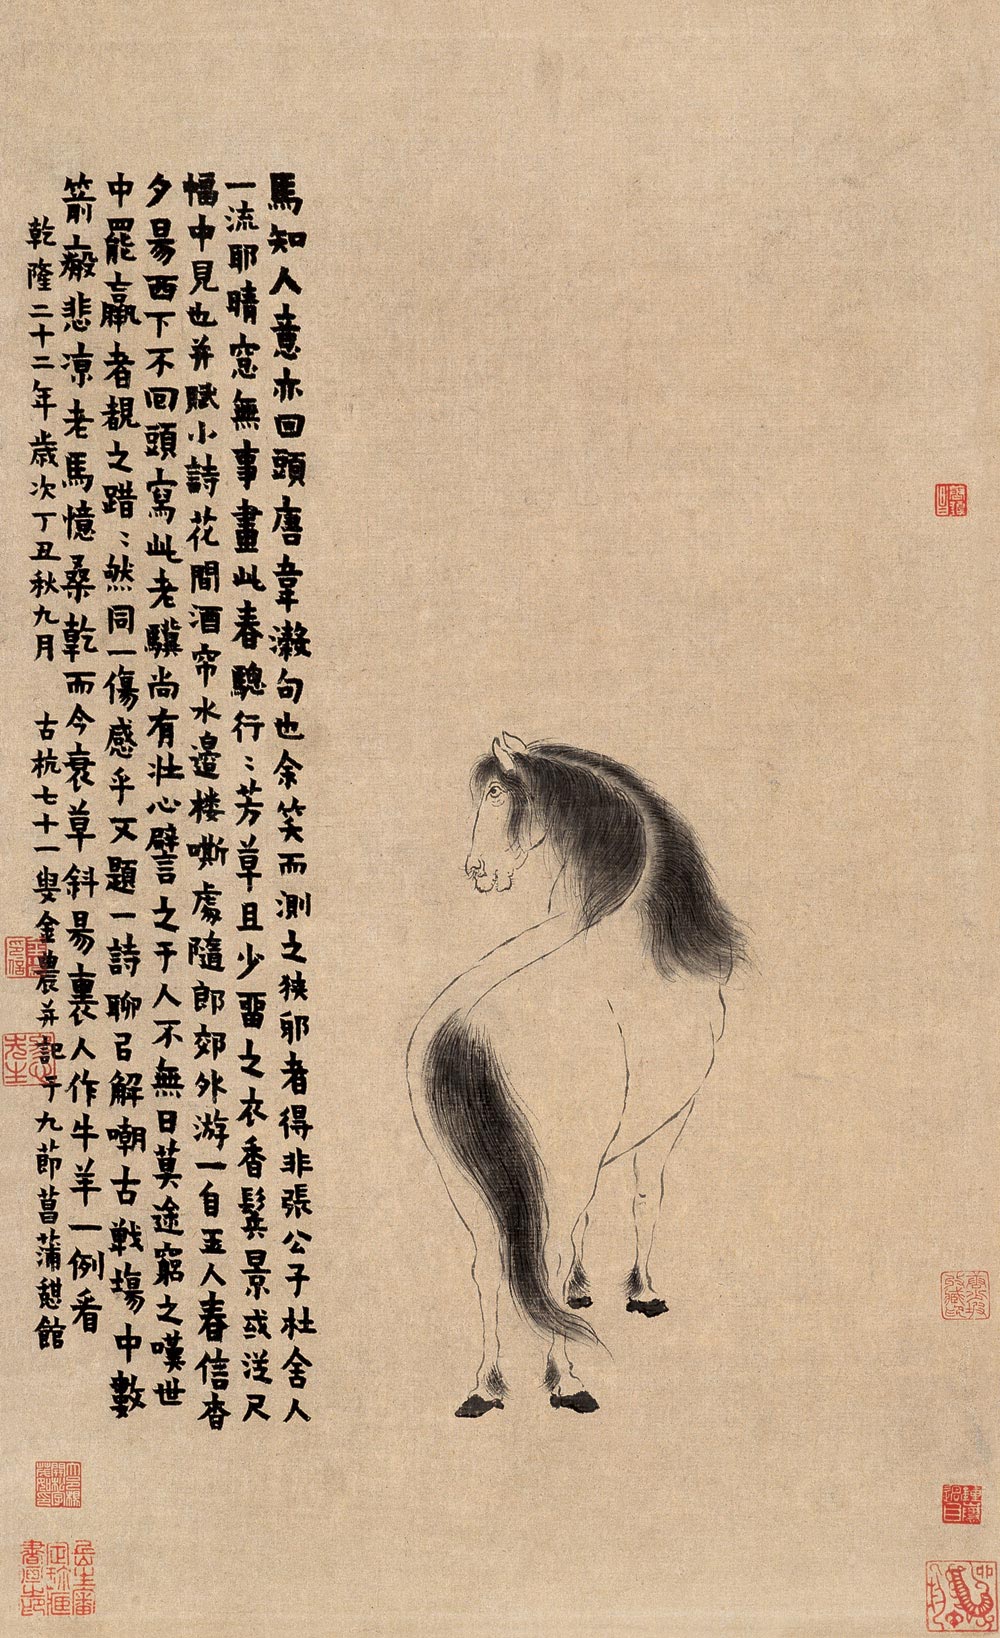 馬知人意亦回頭唐韋瀫句也余笑而測之狹邪者得非張公子杜舍人
一流耶晴窓無事畫此春驄行〻芳草且少畱之衣香鬂景或從尺
幅中見也并賦小詩花間酒帘水邉樓嘶處隨郎郊外游一自玉人春信杳
夕昜西下不回頭寫此老驥尚有壯心譬之于人不無日莫途窮之嘆世
中罷羸者覩之踖〻然同一傷感乎又題一詩聊㠯解嘲古戰塲中數
箭瘢悲涼老馬憶桑乾而今衰草斜昜裏人作牛羊一例看
乾隆二十二年歲次丁丑秋九月 古杭七十一叟金農并記于九節菖蒲憩館